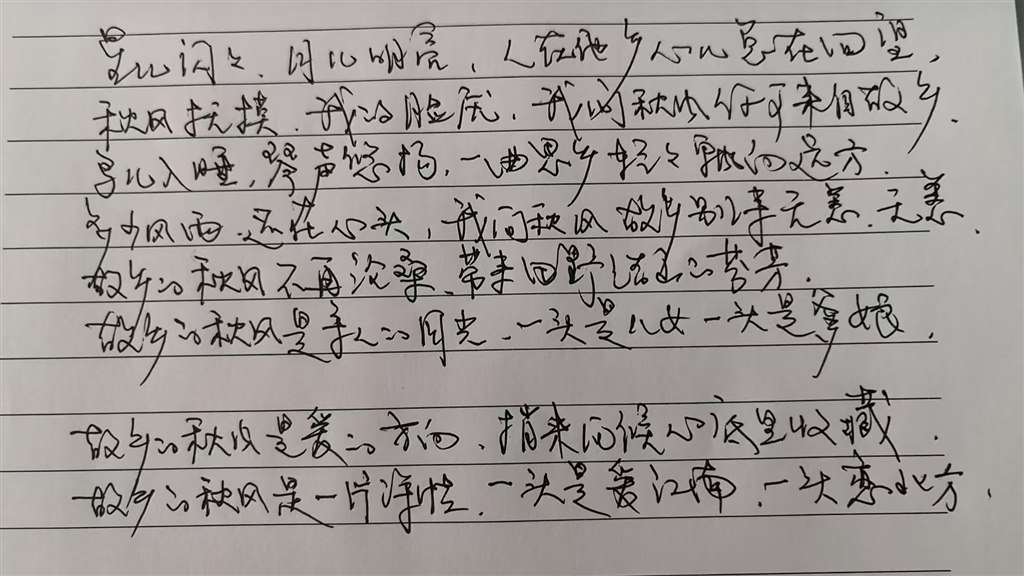 星儿闪闪、月儿明亮，人在他乡心儿总在回望，
秋风抚摸、我的脸庞，我问秋风你可来自故乡．
鸟儿入睡，琴声悠扬，一曲思乡轻轻飘向远方．
多少风雨 还在心头，我问秋风故乡别来无恙．无恙．
故乡的秋风不再沧桑、带来田野 的芬芳．
故乡的秋风是 人的目光、一头是儿女一头是爹娘．
故乡的秋风是爱的方向、捎来问候心底里收藏．
故乡的秋风是一片深情．一头是爱江南．一头恋北方．